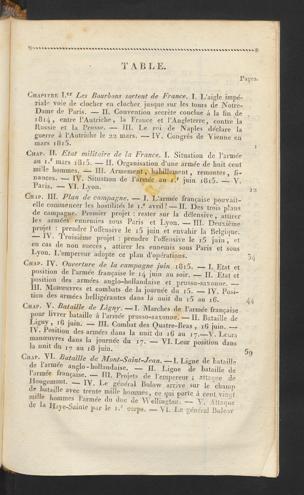 TABLE.
Pages.
CHAPITRE I.er Les Bourbons sortent de France. I. L'aigle impé-
riale voie de clocher en clocher jusque sur les tours de Notre-
Dame de Paris. — II. Convention secrète conclue à la fin de
1814, entre l'Autriche, la France et l'Angleterre, contre la
Russie et la Prusse. — III. Le roi de Naples déclare la
guerre à l'Autriche le 22 mars. — IV. Congrès de Vienne en
mars 1815. 1
CHAP. II. Etat militaire de la France. I. Situation de l'armée
au 1.er mars 1815. — II. Organisation d'une armée de huit cent
mille hommes. — III. Armement, habillement, remontes, fi-
nances. — IV. Situation de l'armée au 1.er juin 1815. — V.
Paris. — VI. Lyon. 12
CHAP. III. Plan de campagne. — I. L'armée française pouvait-
elle commencer les hostilités le 1.er avril? — II. Des trois plans
de campagne. Premier projet: rester sur la défensive, attirer
les armées ennemies sous Paris et Lyon. — III. Deuxième
projet: prendre l'offensive le 15 juin et envahir la Belgique.
— IV. Troisième projet: prendre l'offensive le 15 juin, et
en cas de non succès, attirer les ennemis sous Paris et sous
Lyon. L'empereur adopte ce plan d'opérations. 34
CHAP. IV. Ouverture de la campagne juin 1815. — I. Etat et
position de l'armée française le 14 juin au soir. — II. Etat et
position des armées anglo-hollandaise et prusso-saxonne. —
III. Manœuvres et combats de la journée du 15. — IV. Posi-
tion des armées belligérantes dans la nuit du 15 au 16. 44
CHAP. V. Bataille de Ligny. — I. Marches de l'armée française
pour livrer bataille à l'armée prusso-saxonne. — II. Bataille de
Ligny, 16 juin. — III. Combat des Quatre-Bras, 16 juin. —
IV. Position des armées dans la nuit du 16 au 17. — V. Leurs
manœuvres dans la journée du 17. — VI. Leur position dans
la nuit du 17 au 18 juin. 59
CHAP. VI. Bataille de Mont-Saint-Jean. — I. Ligne de bataille
de l'armée anglo-hollandaise. — II. Ligne de bataille de
l'armée française. — III. Projets de l'empereur; attaque de
Hougomont. — IV. Le général Bulow arrive sur le champ
de bataille avec trente mille hommes, ce qui porte à cent vingt
mille hommes l'armée du duc de Wellington. — V. Attaque
de la Haye-Sainte par le 1.er corps. — VI. Le général Bulow